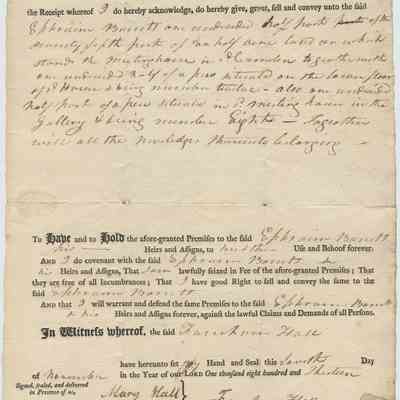 the Receipt whereof I do hereby acknowledge, do hereby give, grant, sell and convey unto the said
Ephraim Barrett one undivided half part of the
seventy fifth part of an half acre land on which
stands the Meetinghouse in together with
one undivided half of a pew situated on the lower floor
of House & being number twelve - also one undivided
half part of a pew situate in meeting house in the
Gallery & being number Eight - Together
with all the Priviledges thereunto belonging
To Have and to Hold the afore-granted Premises to the said Ephraim Barrett
his Heirs and Assigns, to Use and Behoof forever.
AND I do covenant with the said Ephraim Barrett &
his Heirs and Assigns, That I am lawfully seized in Fee of the afore-granted Premises; That
they are free of all Incumbrances; That I have good Right to sell and convey the same to the
said Ephraim Barrett
AND that I will warrant and defend the same Premises to the said Ephraim Barrett
& his Heirs and Assigns forever, against the lawful Claims and Demands of all Persons.
In Witness whereof, the said Farnham Hall
have hereunto set my Hand and Seal this Day
of November in the Year of our LORD One thousand eight hundred and thirteen
Signed, sealed, and delivered
in Presence of us,
Mary Hall
Hall